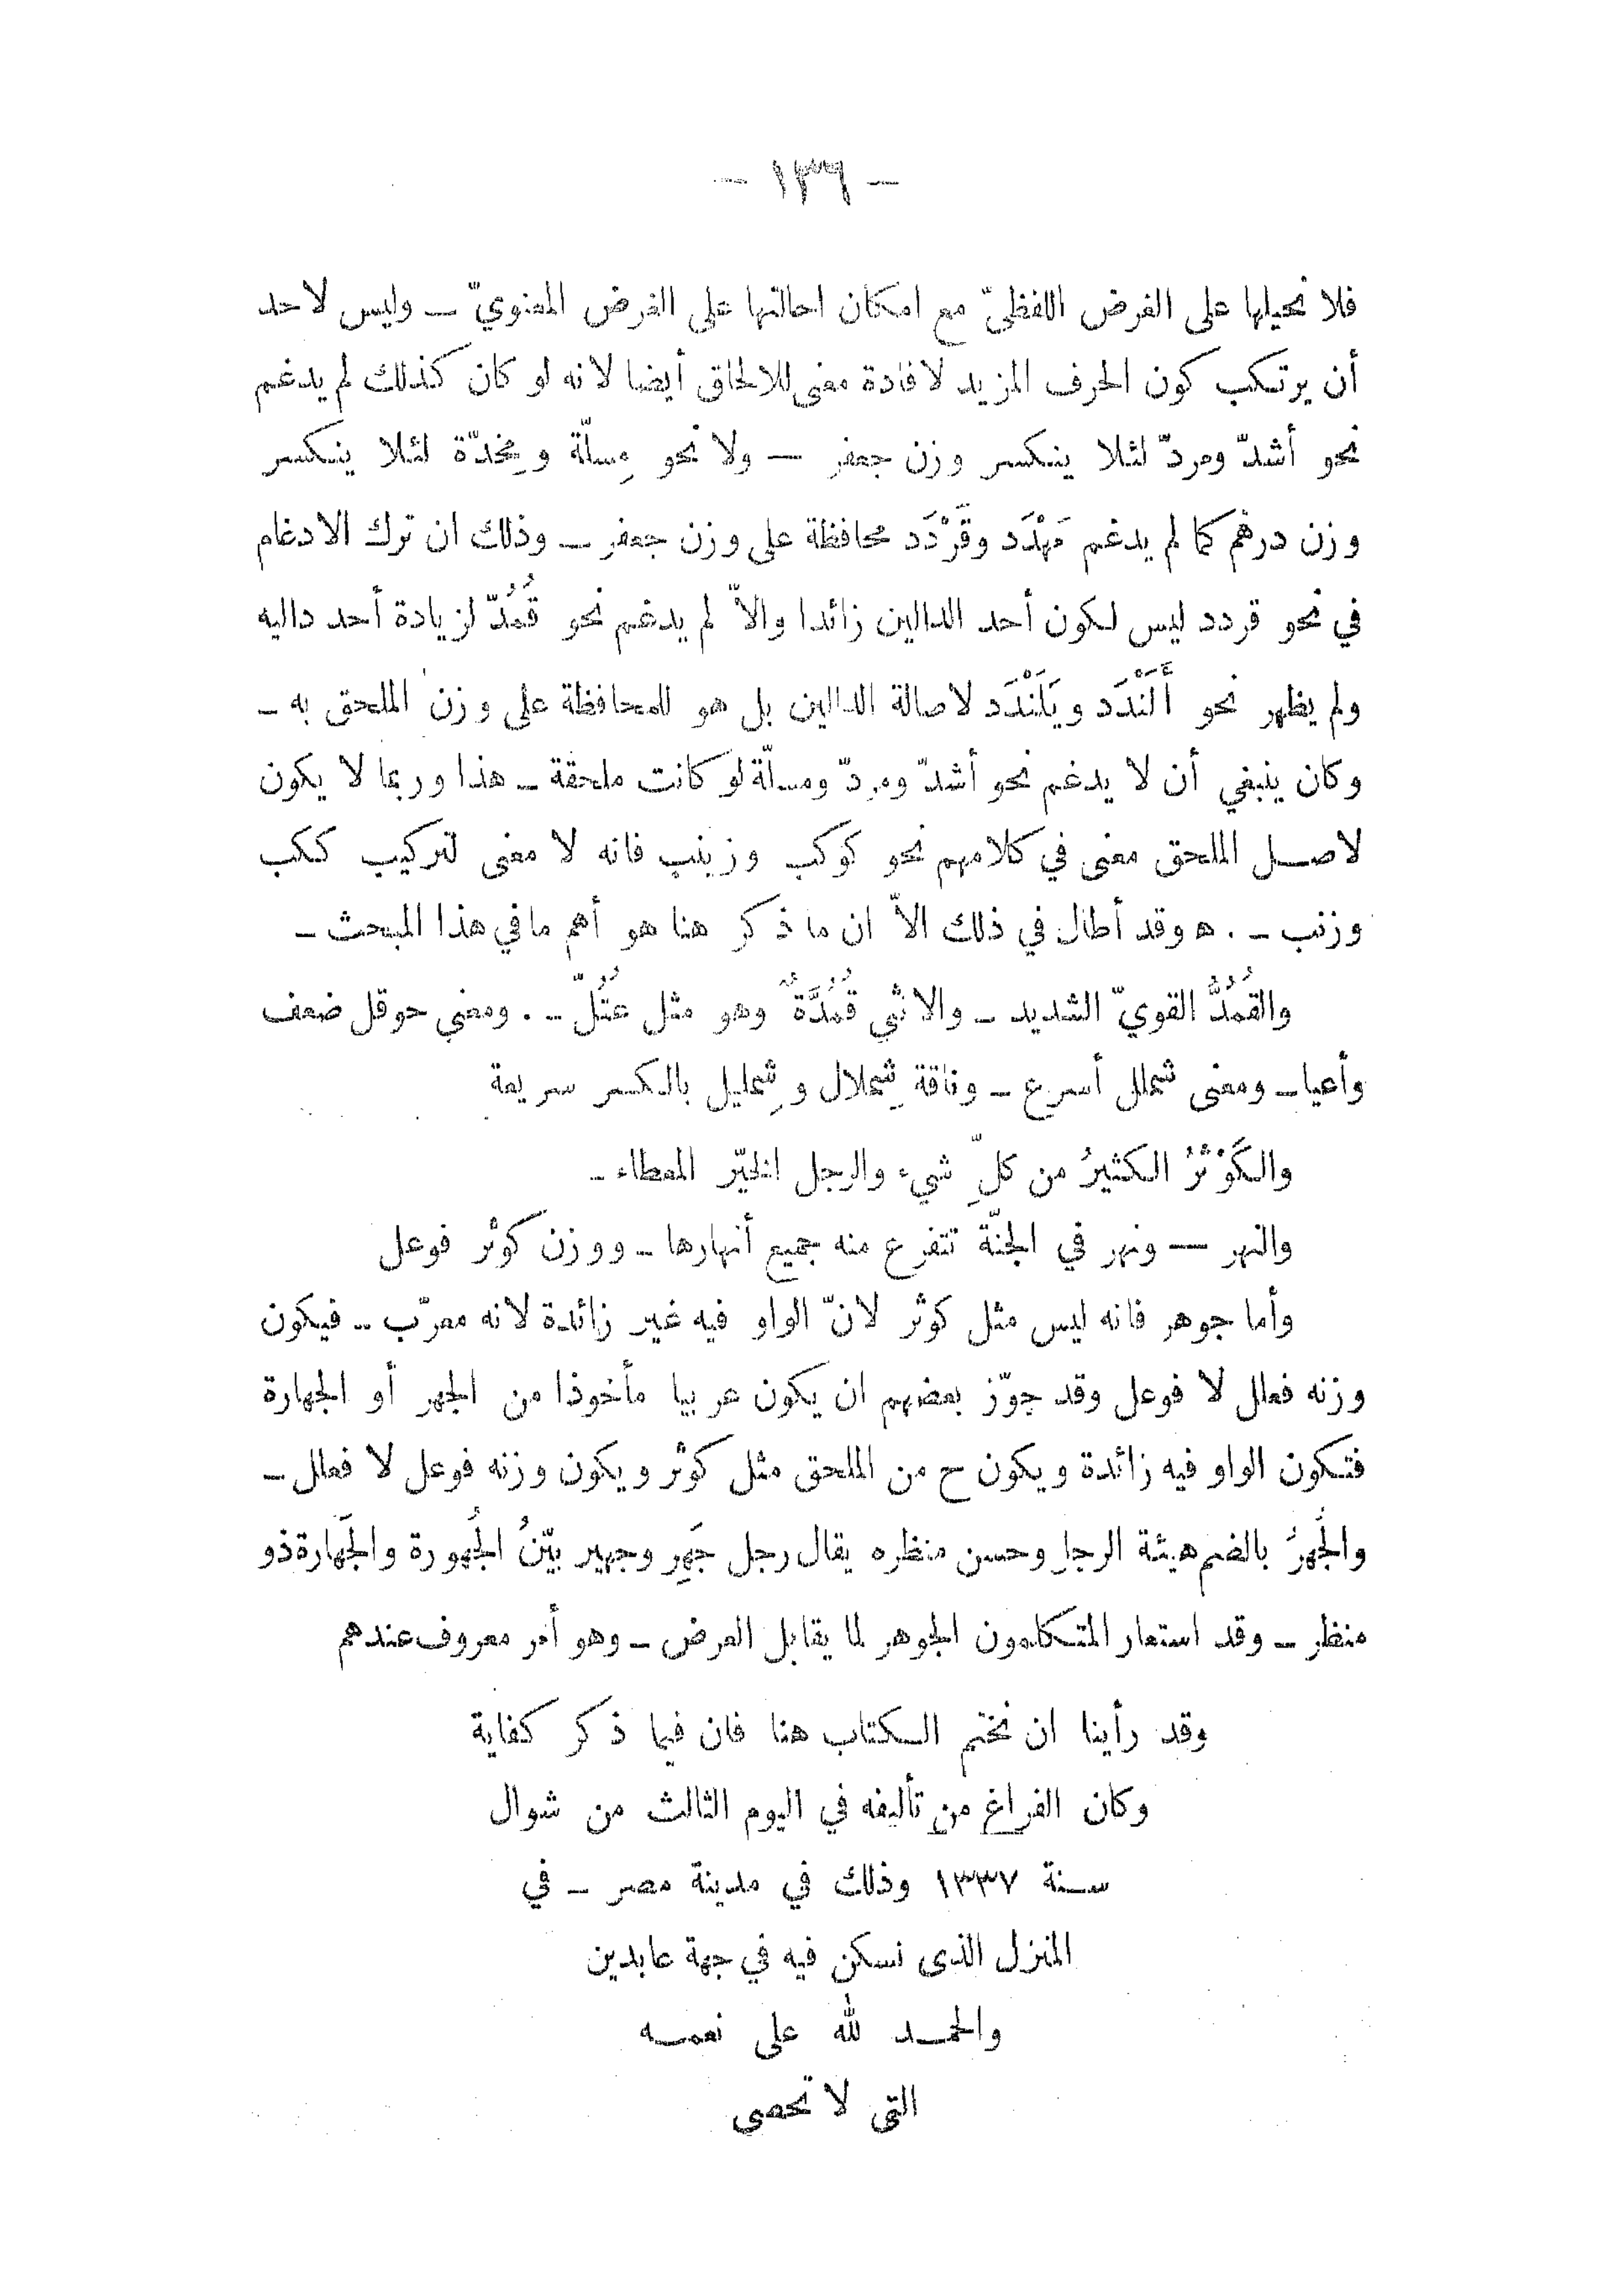 – ١٣٦ –
فلا نحيلها على الغرض اللفظيّ مع امكان احالتها على الغرض المعنويّ – وليس لاحد
أن يرتكب كون الحرف المزيد لافادة معنى للالحاق أيضا لانه لو كان كذلك لم يدغم
نحو أشدّ ومردّ لئلا ينكسر وزن جعفر – ولا نحو مِسلّة ومِخدّة لئلا ينكسر
وزن درهم كما لم يدغم مَهْدَد وقَرْدَد محافظة على وزن جعفر – وذلك ان ترك الادغام
في نحو قردد ليس لكون أحد الدالين زائدا والاّ لم يدغم نحو قُمُدّ لزيادة أحد داليه
ولم يظهر نحو أَلَنْدَد ويَلَنْدَد لاصالة الدالين بل هو للمحافظة على وزن الملحق به –
وكان ينبغي أن لا يدغم نحو أشدّ ومردّ ومسلّة لو كانت ملحقة – هذا وربما لا يكون
لاصل الملحق معنى في كلامهم نحو كوكب وزينب فانه لا معنى لتركيب ككب
وزنب – . ه وقد أطال في ذلك الاّ ان ما ذكر هنا هو أهم ما في هذا المبحث –
والقُمُدُّ القويّ الشديد – والانثى قُمُدَّةٌ وهو مثل عُتُلّ – . ومعنى حوقل ضعف
وأعيا – ومعنى شملل أسرع – وناقة شِملال وشِمليل بالكسر سريعة
والكَوْثَرُ الكثيرُ من كلِّ شيء والرجل الخيّر المعطاء –
والنهر – ونهر في الجنّة تتفرع منه جميع أنهارها – ووزن كوثر فوعل
وأما جوهر فانه ليس مثل كوثر لانّ الواو فيه غير زائدة لانه معرّب – فيكون
وزنه فعلل لا فوعل وقد جوّز بعضهم ان يكون عربيا مأخوذا من الجهر أو الجهارة
فتكون الواو فيه زائدة ويكون ح من الملحق مثل كوثر ويكون وزنه فوعل لا فعلل –
والجُهرُ بالضم هيئة الرجل وحسن منظره يقال رجل جَهِر وجهير بيّنُ الجُهورة والجَهارة ذو
منظر – وقد استعار المتكلمون الجوهر لما يقابل العرض – وهو أمر معروف عندهم
وقد رأينا ان نختم الكتاب هنا فان فيما ذكر كفاية
وكان الفراغ من تأليفه في اليوم الثالث من شوال
سنة ١٣٣٧ وذلك في مدينة مصر – في
المنزل الذى نسكن فيه في جهة عابدين
والحمد لله على نعمه
التى لا تحصى